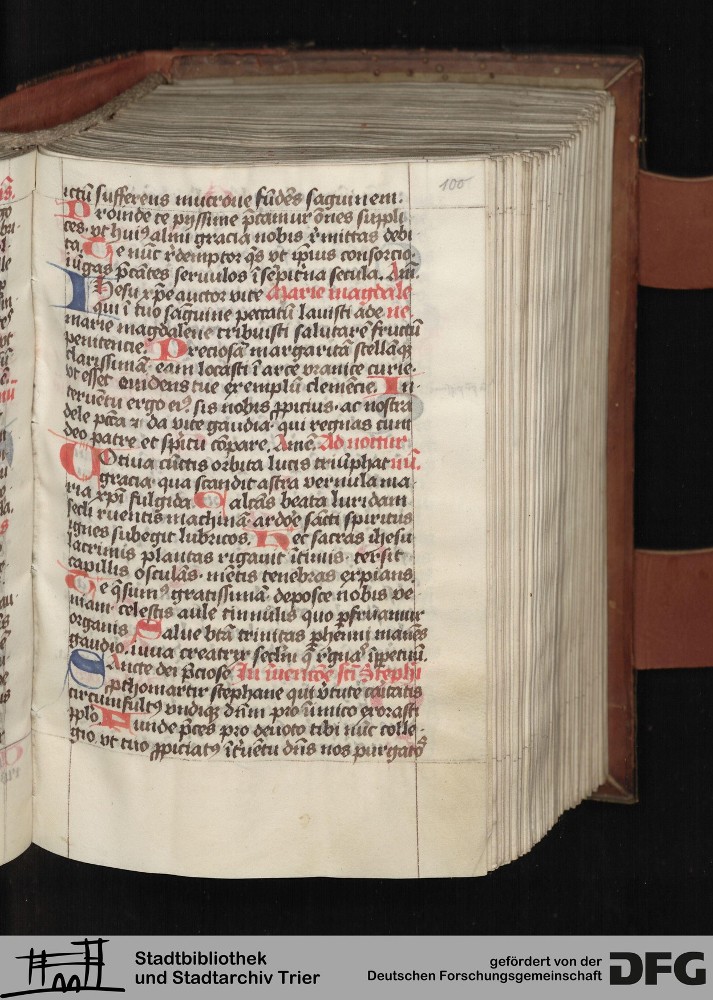 100
ictū sufferens mucrone fūdēs saguinem.
Proinde te pyssime p̄camur ōnes suppli
ces. vt huiꝰ almi gracia nobis r̄mittas debi
ta. Te nūc r̄demptor q̄s vt ip̄ius consorcio
iūgas p̄cātes seruulos ī sepit̄na secula. Am̄.
Ihesu xp̄e auctor vite Marie magdale
qui ī tuo sāguine peccatū lauisti ade ne.
marie magdalene tribuisti salutarē fructū
penitencie. Preciosā margaritā stellāq̄
clarissimā. eam locasti ī arce vranice curie.
vt esset euidens tue exemplū clemēcie. In
teruētu ergo eiꝰ sis nobis ꝓpicius. ac nostra
dele pctā ⁊ da vite gaudia. qui regnas cum
deo patre et sp̄itu cōpare. Amē. Ad nottur
Uotiua cūctis orbita lucis triūphat nū.
gracia. qua scandit astra vernula ma
ria xp̄i fulgida. Calcās beata luridam
secli ruentis machinā. ardōe sācti spiritus
ignes subegit lubricos. Hec sacras ihesu
lacrimis plantas rigauit ītimis. tersit
capillis osculās. mētis tenebras expians.
Te q̄sumꝰ gratissimā. deposce nobis ve
niam. celestis aule tinnulis quo p̄fruamur
organis Salue btā trinitas phēni manēs
gaudio. vna creatrix seclm̄ q̄ r̄gnas īppetuū.
Sancte dei p̄ciose In īuencōe scī Stephī
ꝓthomartir stephane qui v̄tute caritatis
circumfultꝰ vndiqꝫ dn̄m pro inimico exorasti
pplō Funde p̄ces pro deuoto tibi nūc colle
gio. vt tuo ꝓpiciatꝰ īt̄uētu dn̄s nos purgatō
Stadtbibliothek
und Stadtarchiv Trier
gefördert von der
Deutschen Forschungsgemeinschaft DFG